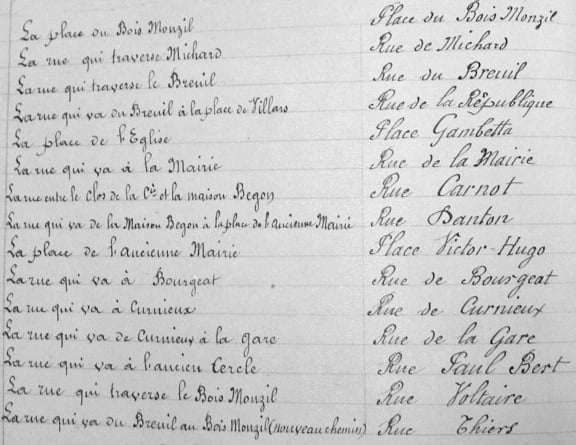 La place du Bois Monzil Place du Bois Monzil
La rue qui traverse Michard Rue de Michard
La rue qui traverse le Breuil Rue du Breuil
La rue qui va du Breuil à la place de Villars Rue de la République
La place de l'Eglise Place Gambetta
La rue qui va à la Mairie Rue de la Mairie
La rue entre le clos de la Cie et la maison Begon Rue Carnot
La rue qui va de la Maison Begon à la place de l'ancienne Mairie Rue Danton
La place de l'ancienne Mairie Place Victor-Hugo
La rue qui va à Bourgeat Rue de Bourgeat
La rue qui va à Curnieux Rue de Curnieux
La rue qui va de Curnieux à la gare Rue de la Gare
La rue qui va à l'ancien Cercle Rue Paul Bert
La rue qui traverse le Bois Monzil Rue Voltaire
La rue qui va du Breuil au Bois Monzil (nouveau chemin) Rue Thiers